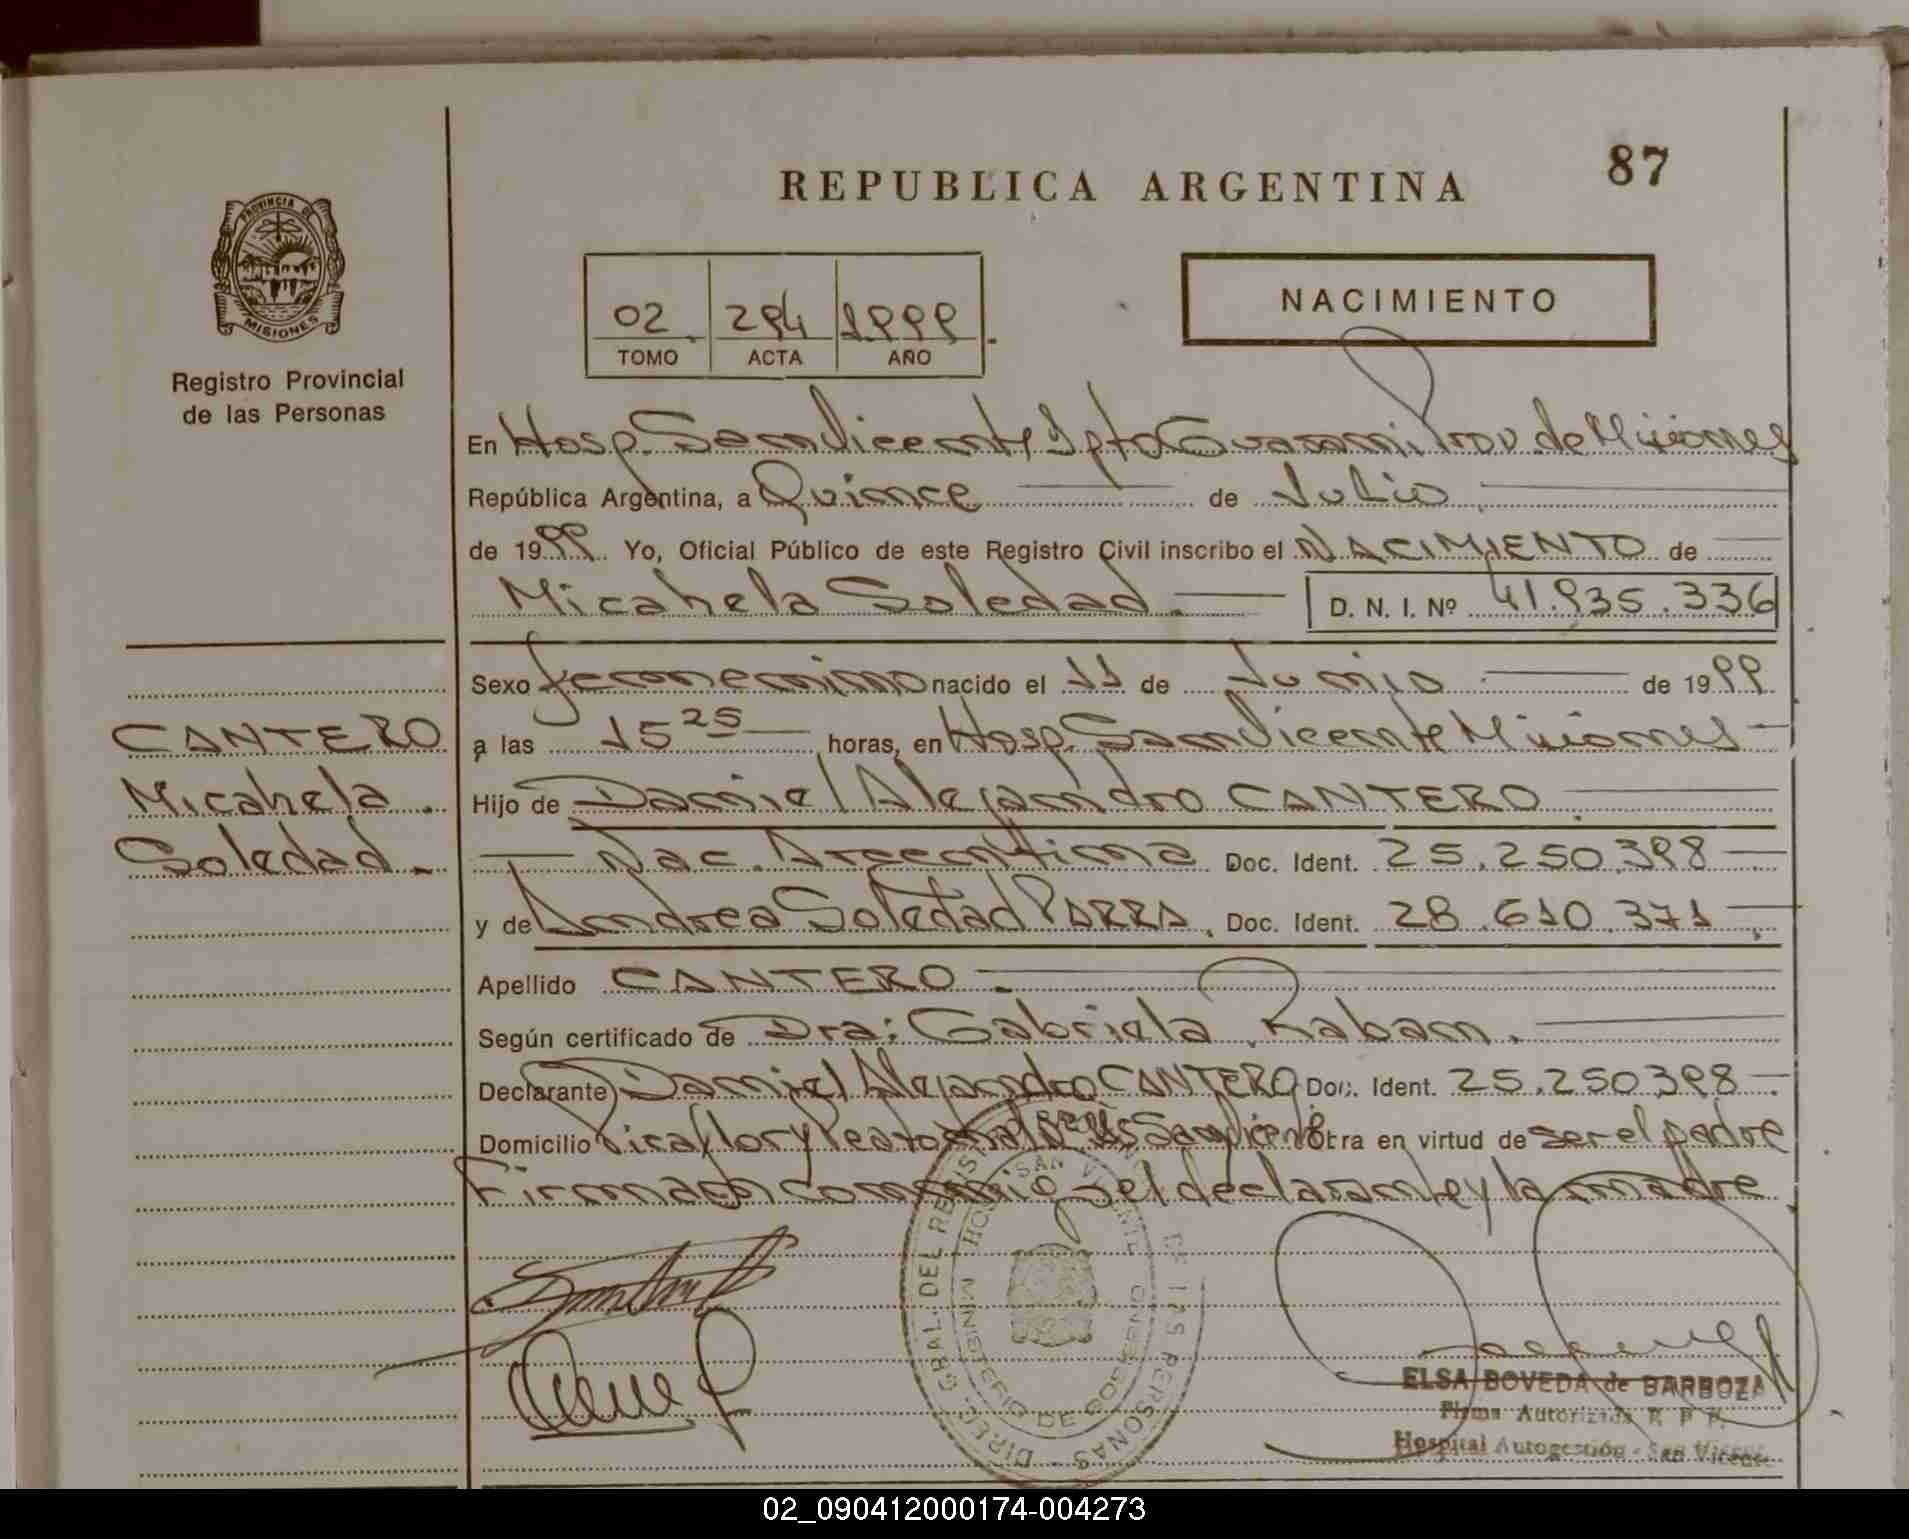 87
REPUBLICA ARGENTINA
PROVINCIA DE
MISIONES
Registro Provincial
de las Personas
02 294 1999
TOMO ACTA AÑO
NACIMIENTO
En Hosp. San Vicente Dpto Guarani Prov. de Misiones
República Argentina, a Quince de Julio
de 1999 Yo, Oficial Público de este Registro Civil inscribo el NACIMIENTO de
Micahela Soledad. D. N. I. Nº 41.935.336
CANTERO
Micahela
Soledad.
Sexo femenino nacido el 11 de Junio de 1999
a las 15 25 horas, en Hosp. San Vicente Misiones
Hijo de Daniel Alejandro CANTERO
Nac. Argentina Doc. Ident. 25.250.398
y de Andrea Soledad PARRA. Doc. Ident. 28.610.371
Apellido CANTERO
Según certificado de Dra: Gabriela Raban.
Declarante Daniel Alejandro CANTERO Doc. Ident. 25.250.398
Domicilio Picaflor y San Vicente Obra en virtud de ser el padre
Firman conmigo el declarante y la madre.
DIREC. GRAL. DEL REGISTRO DE LAS PERSONAS
HOSP. SAN VICENTE
MINISTERIO DE GOBIERNO
ELSA BOVEDA de BARBOZA
Firma Autorizada R. P. P.
Hospital Autogestión - San Vicente
02_090412000174-004273